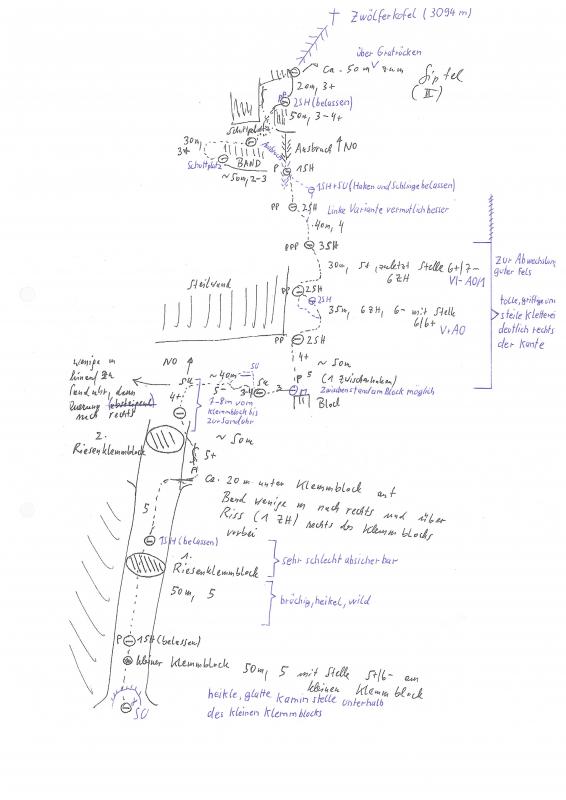 Zwölferkofel (3094 m)
über Gratrücken
ca. 50m zum Gipfel
(II)
20m, 3+
PP 2SH (belassen)
50m, 3-4+
Schuttplatz
30m,
3+
Ausbruch
Ausbruch ↑ NO
BAND
Schuttplatz
P 1SH
~50m, 2-3
1SH+SU (Haken und Schlinge belassen)
PP 2SH
Linke Variante vermutlich besser
40m, 4
PPP 3SH
30m, 5+, zuletzt Stelle 6+/7-
6ZH VI-A0/1
zur Abwechslung
guter Fels
Steilwand
PP 2SH
2SH
35m, 6ZH, 6- mit Stelle
6/6+
V+A0
tolle, griffige und
steile Kletterei
deutlich rechts
der Kante
PP 2SH
4+
~50m
P 5 (1 Zwischenhaken)
Zwischenstand am Block möglich
Block
wenige m
hinauf zu
Sanduhr, dann
Querung (absteigend)
nach rechts
NO
SU
~40m
SU
5
3-4
SU
3
4+
7-8m vom
Klemmblock bis
zur Sanduhr
2.
Riesenklemmblock
~50m
5+
PP
ca. 20m unter Klemmblock auf
Band wenige m nach rechts und über
Riss (1 ZH) rechts des Klemmblocks
vorbei
5
1SH (belassen)
1.
Riesenklemmblock
sehr schlecht absicherbar
50m, 5
brüchig, heikel, wild
P 1SH (belassen)
kleiner Klemmblock 50m, 5 mit Stelle 5+/6- am
kleinen Klemmblock
heikle, glatte Kaminstelle unterhalb
des kleinen Klemmblocks
SU